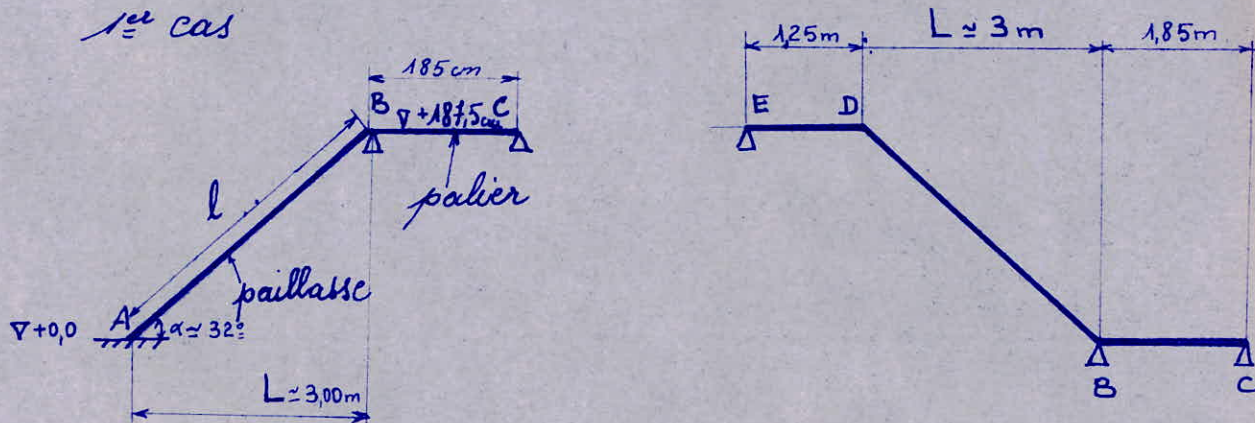 1er cas
185 cm
B
C
∇ +187,5 cm
l
palier
paillasse
A
∇ +0,0
α ≃ 32°
L ≃ 3,00m
1,25m
L ≃ 3 m
1,85m
E
D
B
C